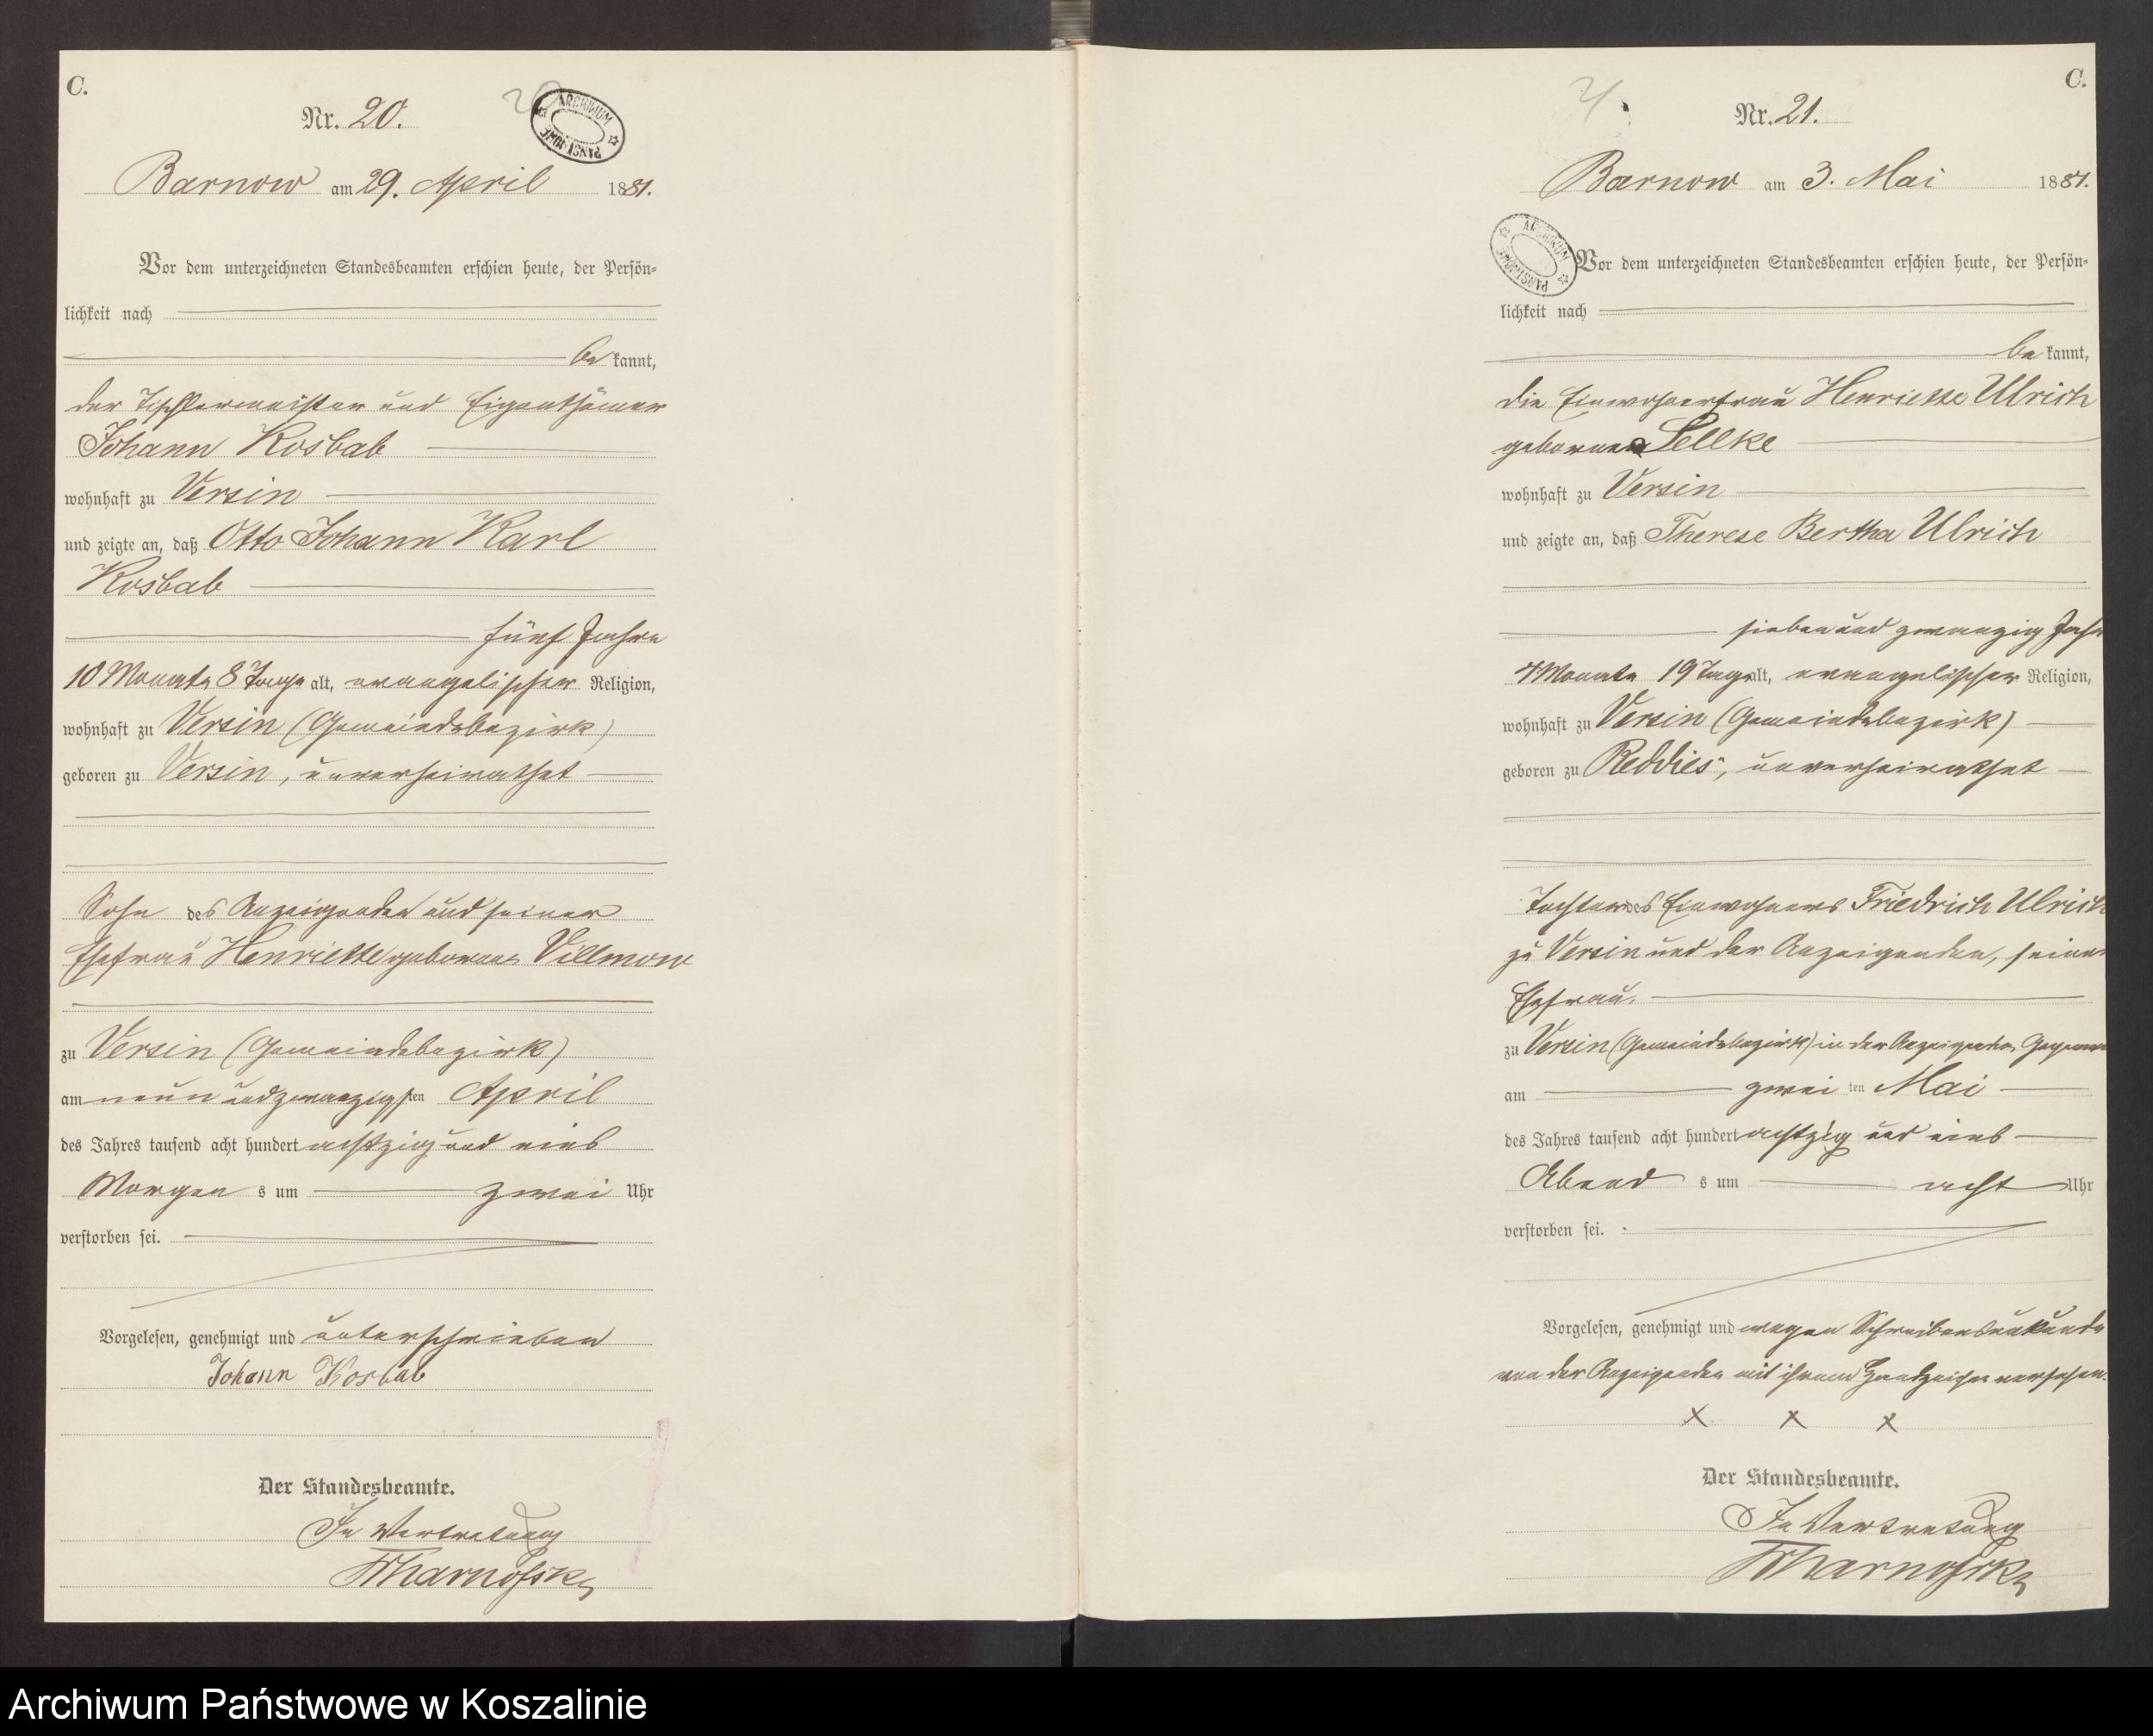 C.
Nr. 20.
20
ARCHIWUM PAŃSTWOWE
Barnow am 29. April 1881.
Vor dem unterzeichneten Standesbeamten erschien heute, der Persön-
lichkeit nach
be kannt,
der Tischlermeister und Eigenthümer
Johann Kosbab
wohnhaft zu Versin
und zeigte an, daß Otto Johann Karl
Kosbab
fünf Jahre
10 Monate 8 Tage alt, evangelischer Religion,
wohnhaft zu Versin (Gemeindebezirk)
geboren zu Versin, unverheirathet
Sohn des Anzeigenden und seiner
Ehefrau Henriette geborene Villmow
zu Versin (Gemeindebezirk)
am neun und zwanzigsten April
des Jahres tausend acht hundert achtzig und eins
Morgen s um zwei Uhr
verstorben sei.
Vorgelesen, genehmigt und unterschrieben
Johann Kosbab
Der Standesbeamte.
In Vertretung
C.
21
Nr. 21.
Barnow am 3. Mai 1881.
ARCHIWUM PAŃSTWOWE
Vor dem unterzeichneten Standesbeamten erschien heute, der Persön-
lichkeit nach
be kannt,
die Einwohnerfrau Henriette Ulrich
geborene Sellke
wohnhaft zu Versin
und zeigte an, daß Therese Bertha Ulrich
sieben und zwanzig Jahr
4 Monate 19 Tage alt, evangelischer Religion,
wohnhaft zu Versin (Gemeindebezirk)
geboren zu Reddies, unverheirathet
Tochter des Einwohners Friedrich Ulrich
zu Versin und der Anzeigenden, seiner
Ehefrau.
zu Versin (Gemeindebezirk) in der Anzeigenden Gegenwart
am zwei ten Mai
des Jahres tausend acht hundert achtzig und eins
Abend s um acht Uhr
verstorben sei.
Vorgelesen, genehmigt und wegen Schreibensunkunde
von der Anzeigenden mit ihrem Handzeichen versehen.
x x x
Der Standesbeamte.
In Vertretung
Archiwum Państwowe w Koszalinie